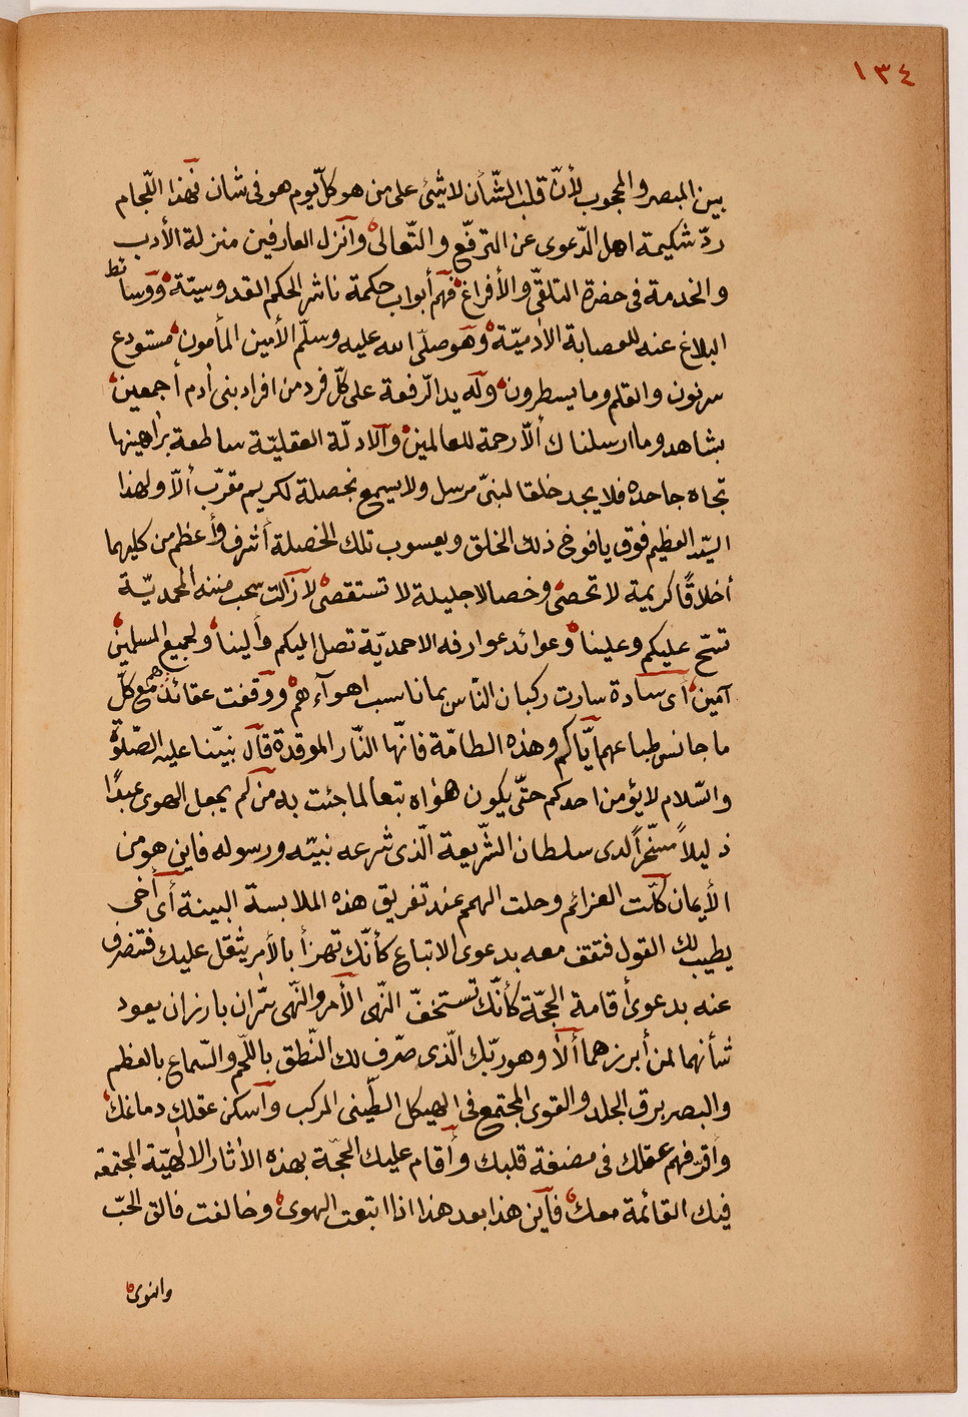 ١٣٤
بين المبصر والمحجوب لأنّ قلب الشّأن لا شئ على من هو كلّ يوم هو فى شان فهذا اللّجام
ردّ شكيمة اهل الدّعوى عن الترفّع والتّعالى وآنزل العارفين منزلة الأدب
والخدمة فى حضرة التلقّى والأفراغ فهم أبواب حكمة ناشر الحكم القدوسيّة ووسائط
البلاغ عنه للعصابة الادميّة وهو صلّى الله عليه وسلّم الأمين المأمون مستودع
سر نون والقلم وما يسطرون وله يد الرّفعة على كلّ فرد من افراد بنى أدم أجمعين
بشاهد وما ارسلناك ألاّ رحمة للعالمين وآلادلّة العقليّة ساطعة براهينها
تجاه جاحده فلا يجد خلقا لنبىّ مرسل ولا يسمع بخصلة لكريم مقرّب ألاّ ولهذا
السّيّد العظيم فوق يافوخ ذلك الخلق ويعسوب تلك الخصلة أشرف وأعظم من كليهما
أخلاقًا كريمة لا تحصى وخصالا جليلة لا تستقصى لازآلت سحب مننه المحمديّة
تسحّ عليكم وعلينا وعوائد عوارفه الاحمديّة تصل اليكم وألينا ولجميع المسلمين
آمين أى سادة سارت ركبان النّاس بما ناسب اهوآءهم ووقفت عقائدهم مع كلّ
ما جانس طباعهم ايّاكم وهذه الطامّة فانّها النّار الموقدة قآل نبيّنا عليه الصّلوة
والسّلام لا يؤمن احدكم حتّى يكون هواه تبعا لما جئت به من كم يجعل الهوى عبدًا
ذليلاً مسخّراً لدى سلطان الشّريعة الّذى شرعه نبيّه ورسوله فاين هو من
الأيمان كلّت العزائم وحلت الهمم عند تفريق هذه الملابسة البينة أى أخى
يطيب لك القول فتقف معه بدعوى الاتباع كأنّك تهزأ بالأمر يثقل عليك فتنصرف
عنه بدعوى أقامة الحجّة كأنّك تستخفّ النّهى الأمر والنّهى سرّان بارزان يعود
شأنهما لمن أبرزهما ألا وهو ربّك الّذى صرّف لك النّطق باللّحم والسّماع بالعظم
والبصر برق الجلد والقوى المجتمع فى الهيكل الطّينى المركب وآسكن عقلك دماغك
واقرّ فهم عقلك فى مضغة قلبك وأقام عليك الحجّة بهذه الاثار الالهيّة المجتمعة
فيك القائمة معك فآين هذا بعد هذا اذا اتبعت الهوى وخالفت فالق الحبّ
والنوى